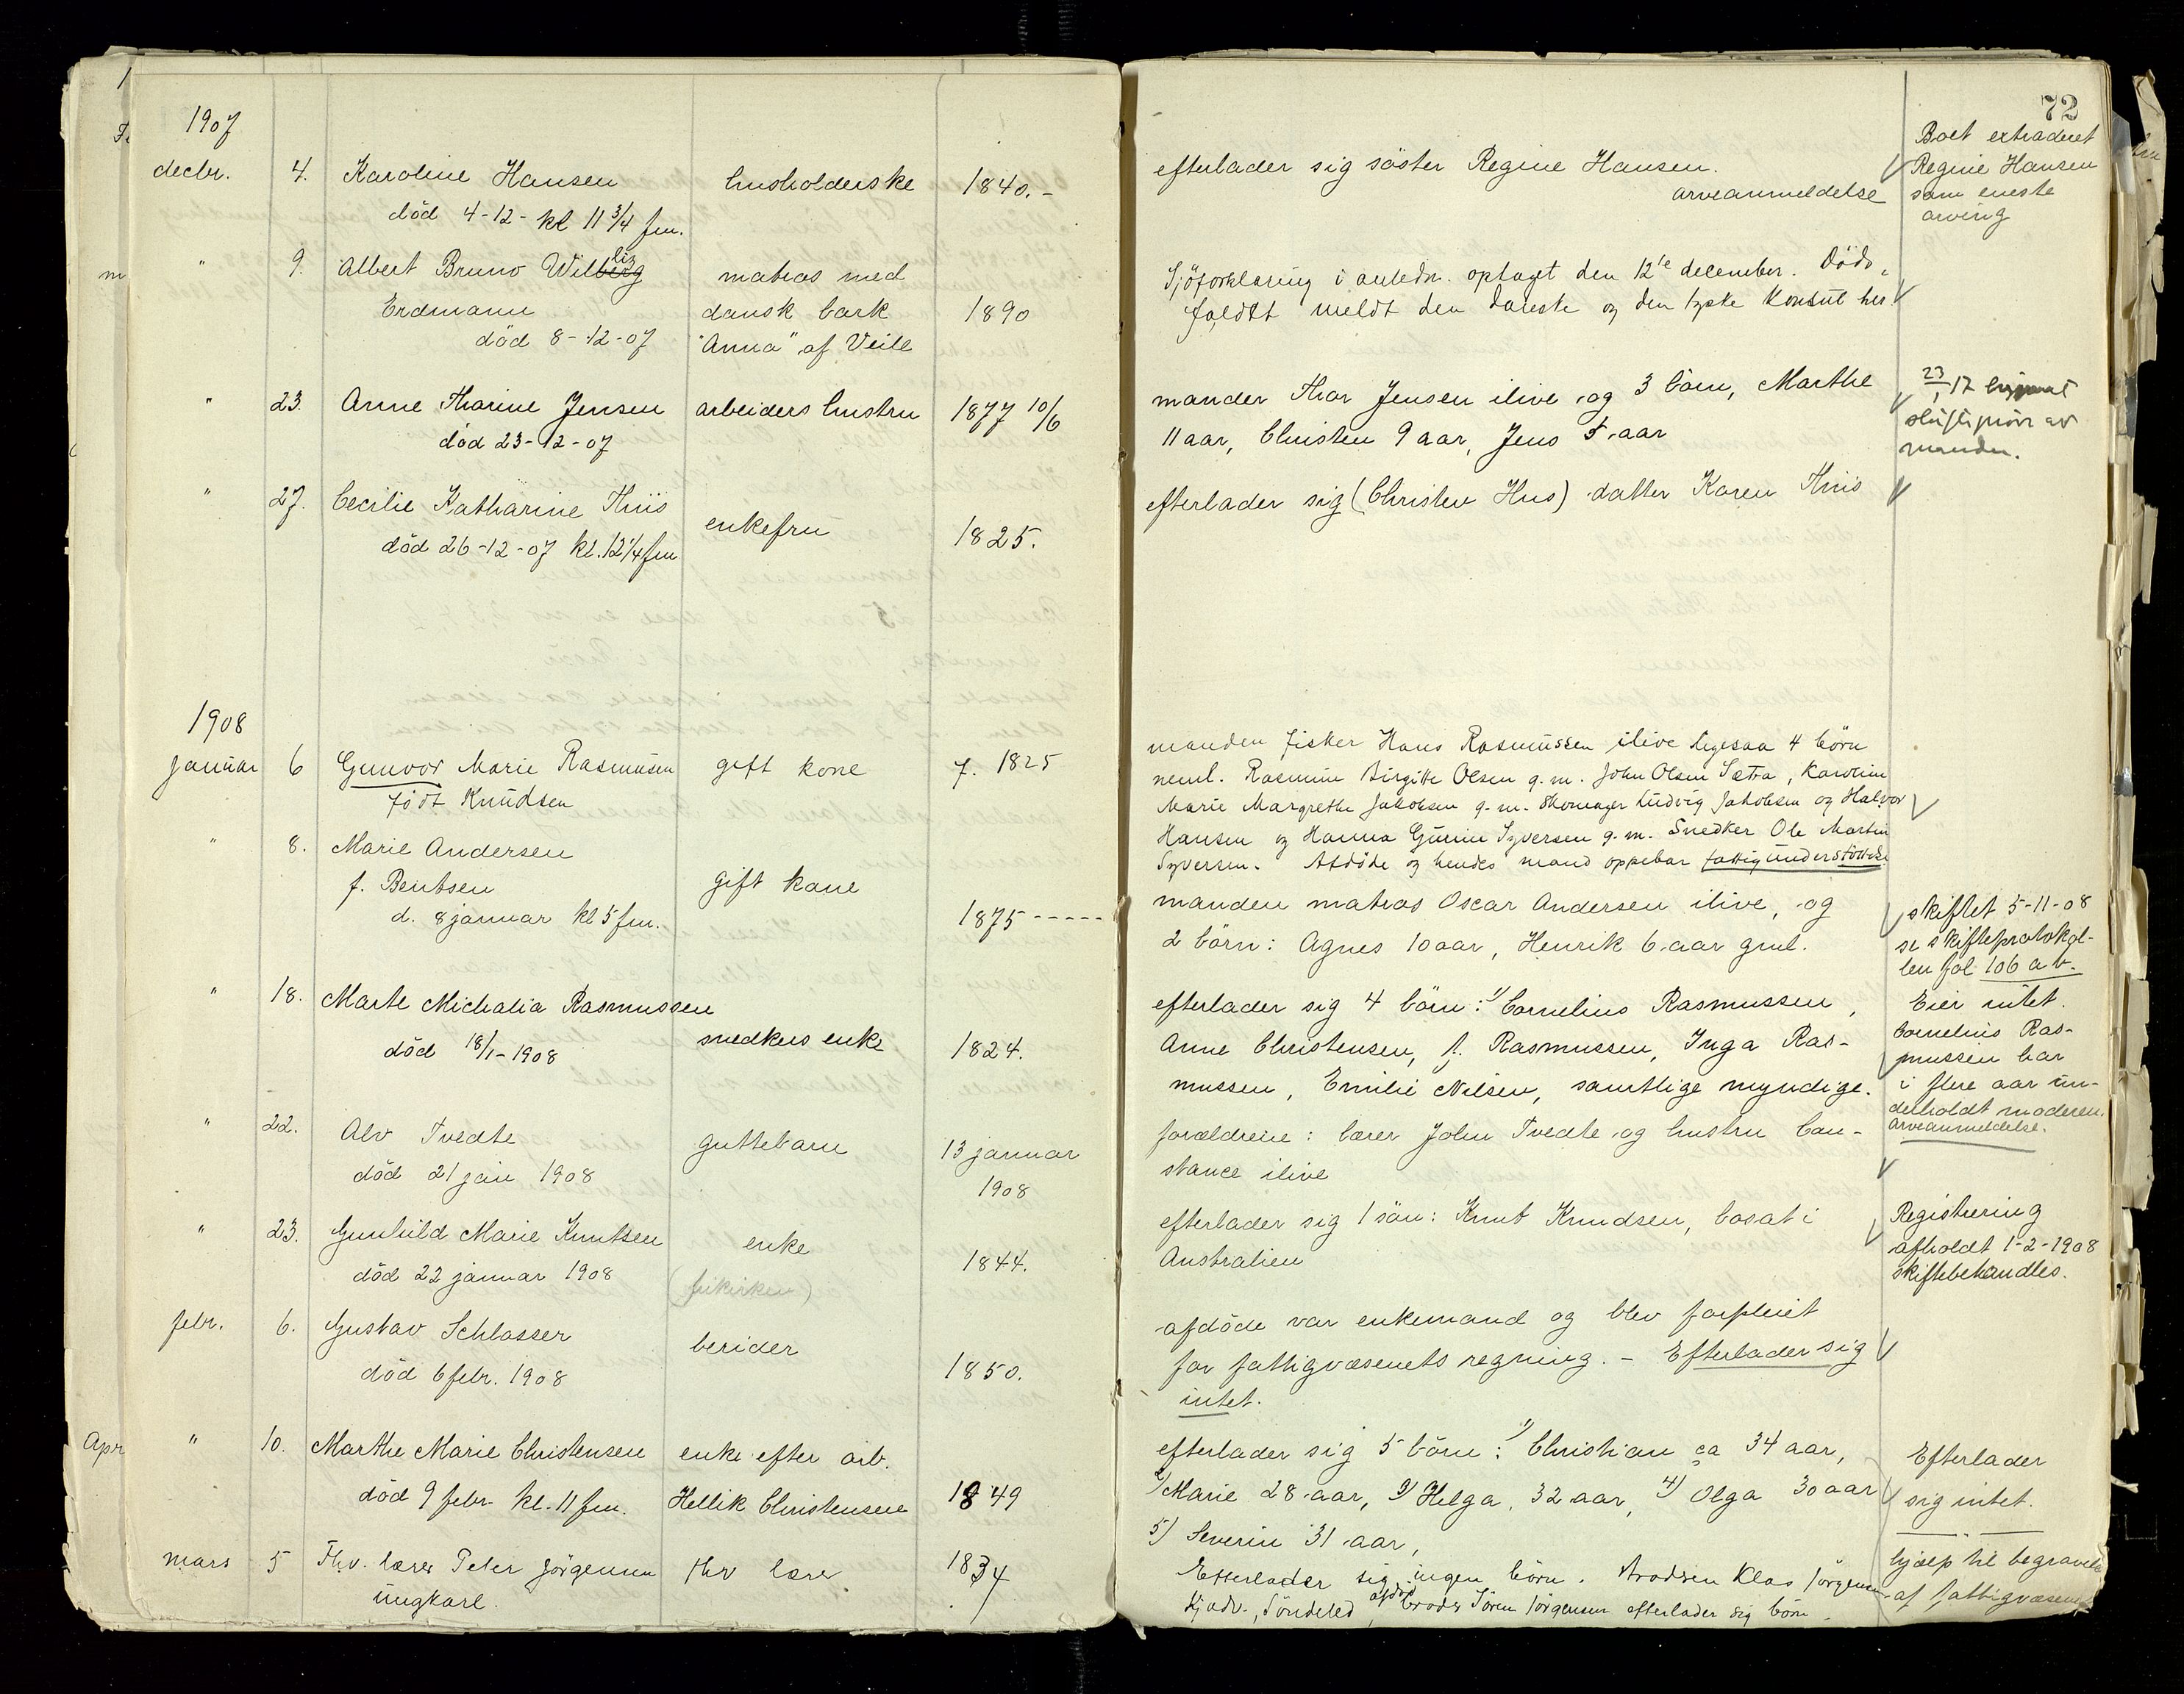 72
1907
decbr. 4. Karoline Hansen husholderske 1840.-
död 4-12- kl 11 3/4 fm.
efterlader sig söster Regine Hansen.
arveanmeldelse
Boet extraderet
Regine Hansen
som eneste
arving
" 9. Albert Bruno Wilberg matros med
Erdmann dansk bark 1890
död 8-12-07 "Anna" af Veile
Sjöforklaring i anledn. optaget den 12te december. Döds-
faldet meldt den danske og den tyske Konsul her
" 23. Anne Tharine Jensen arbeiders hustru 1877 10/6
död 23-12-07
manden Thor Jensen ilive og 3 börn, Marthe
11 aar, Christen 9 aar, Jens 5 aar
23
17
manden.
" 27. Cecilie Katharine Thiis enkefru 1825.
död 26-12-07 kl. 12 1/4 fm
efterlader sig (Christen Hus) datter Karen Thiis
1908
januar 6 Gunvor Marie Rasmusen gift kone f. 1825
født Knudsen
manden fisker Hans Rasmussen ilive ligesaa 4 børn
neml. Rasmine Birgitte Olsen g.m. John Olsen Sætra, Karoline
Marie Margrethe Jakobsen g.m. Skomager Ludvig Jakobsen og Halvor
Hansen og Hanna Gurine Syversen g.m. Snedker Ole Martin
Syversen. Afdöde og hendes mand oppebar fattigunderstöttelse
" 8. Marie Andersen
f. Bentsen gift kone
d. 8 januar kl 5 fm. 1875-----
manden matros Oscar Andersen ilive, og
2 börn: Agnes 10 aar, Henrik 6 aar gml.
skiftet 5-11-08
se skifteprotokol-
len fol 106 a b.
" 18. Marte Michalia Rasmussen
död 18/1-1908 snedkers enke 1824.
efterlader sig 4 börn: 1) Cornelius Rasmussen,
Anne Christensen, f. Rasmussen, Inga Ras-
mussen, Emilie Nilsen, samtlige myndige.
Eier intet.
Cornelius Ras-
mussen har
i flere aar un-
derholdt moderen.
arveanmeldelse.
" 22. Alv Tvedte guttebarn 13 januar
död 21 jan 1908 1908
forældrene: lærer John Tvedte og hustru Con-
stance ilive
" 23. Gunhild Marie Knutsen enke 1844.
död 22 januar 1908 (frikirken)
efterlader sig 1 sön: Knut Knudsen, bosat i
Australien
Registrering
afholdt 1-2-1908
skiftebehandles.
febr. 6. Gustav Schlasser berider
död 6 febr. 1908 1850.
afdöde var enkemand og blev forpleiet
for fattigvæsenets regning. - Efterlader sig
intet.
" 10. Marthe Marie Christensen enke efter arb.
död 9 febr kl. 11 fm. Hellik Christensen 1849
efterlader sig 5 börn: 1) Christian ca 34 aar,
2) Marie 28 aar, 3) Helga, 32 aar, 4) Olga 30 aar
5) Severin 31 aar,
Efterlader
sig intet.
hjælp til begravelse
af fattigvæsenet
mars 5 Fhv. lærer Peter Jörgensen fhv lærer 1834
ungkarl.
Efterlader sig ingen börn. Brodren Klas Jörgensen
Söndeled, afdød broder Sören Jörgensen efterlader sig börn.
Apr